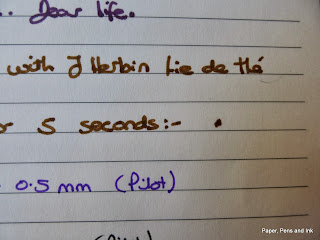 .. Dear life.
with J Herbin Lie de thé
5 seconds:- •
0.5 mm (Pilot)
Paper, Pens and Ink